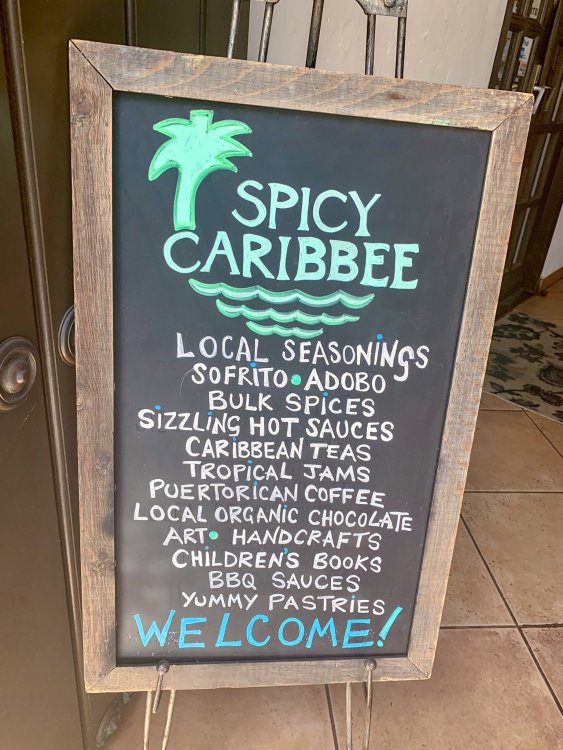 SPICY
CARIBBEE
LOCAL SEASONINGS
SOFRITO • ADOBO
BULK SPICES
SIZZLING HOT SAUCES
CARIBBEAN TEAS
TROPICAL JAMS
PUERTORICAN COFFEE
LOCAL ORGANIC CHOCOLATE
ART • HANDCRAFTS
CHILDREN'S BOOKS
BBQ SAUCES
YUMMY PASTRIES
WELCOME!